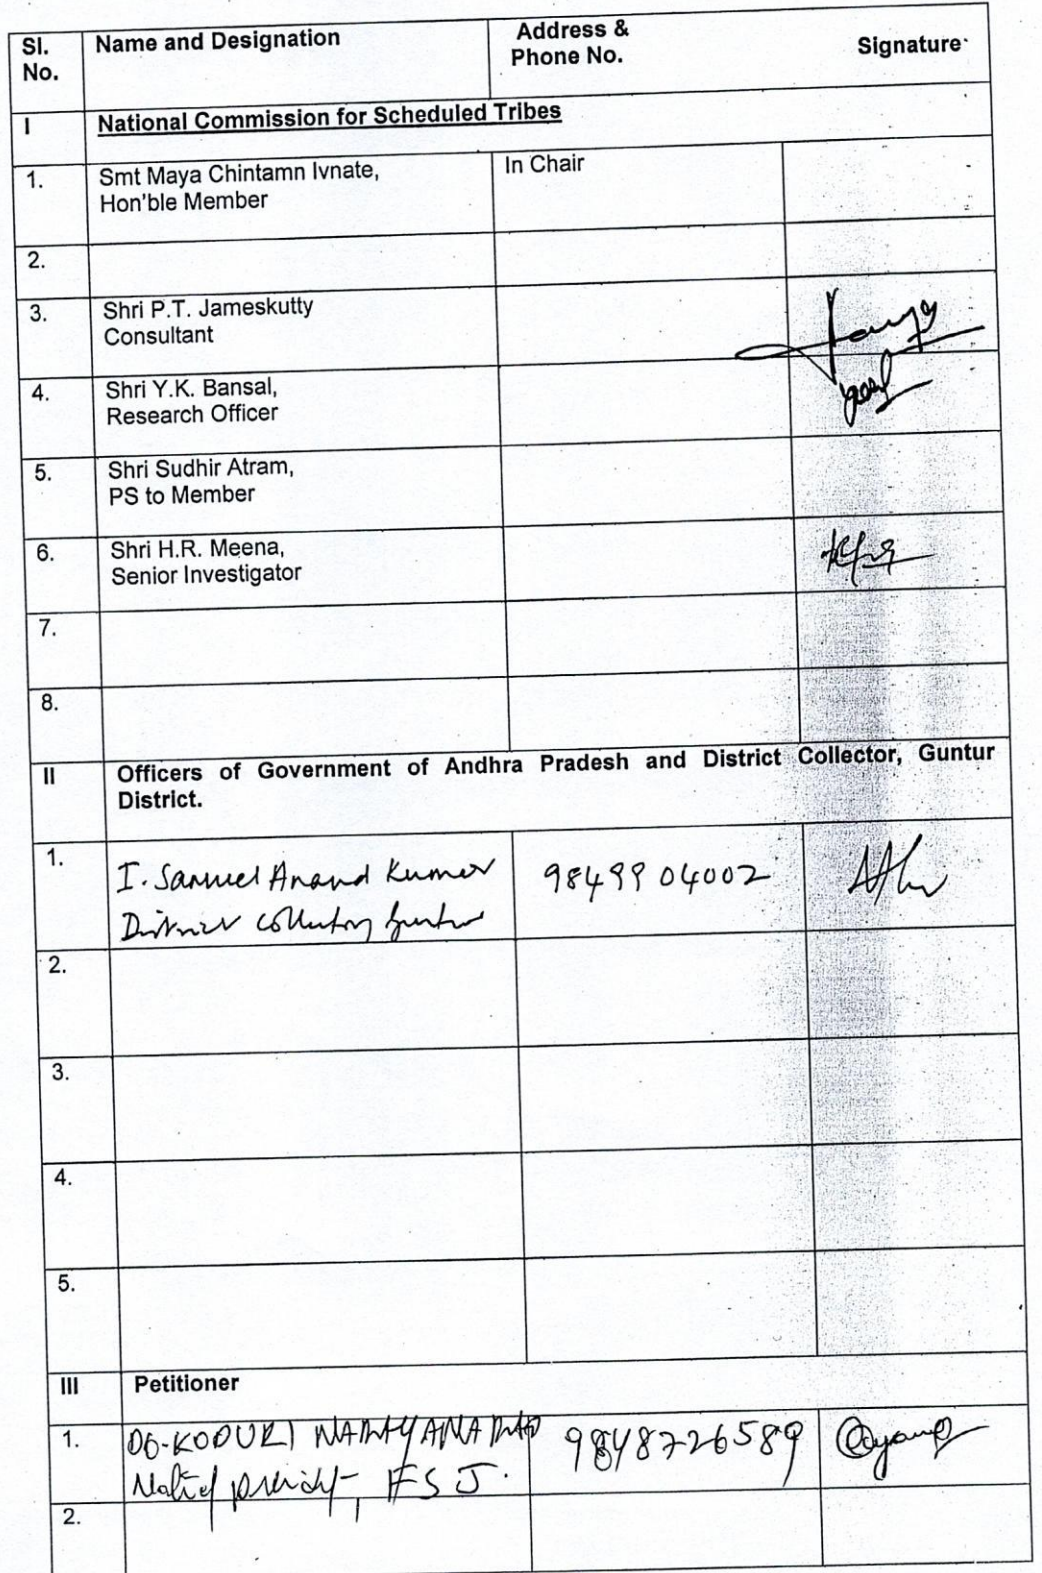 Sl. No.
Name and Designation
Address & Phone No.
Signature
I
National Commission for Scheduled Tribes
1.
Smt Maya Chintamn Ivnate,
Hon'ble Member
In Chair
2.
3.
Shri P.T. Jameskutty
Consultant
4.
Shri Y.K. Bansal,
Research Officer
5.
Shri Sudhir Atram,
PS to Member
6.
Shri H.R. Meena,
Senior Investigator
7.
8.
II
Officers of Government of Andhra Pradesh and District Collector, Guntur
District.
1.
I. Samuel Anand Kumar
District Collector, Guntur
9849904002
2.
3.
4.
5.
III
Petitioner
1.
KODURI NARAYANA RAO
9848726589
2.